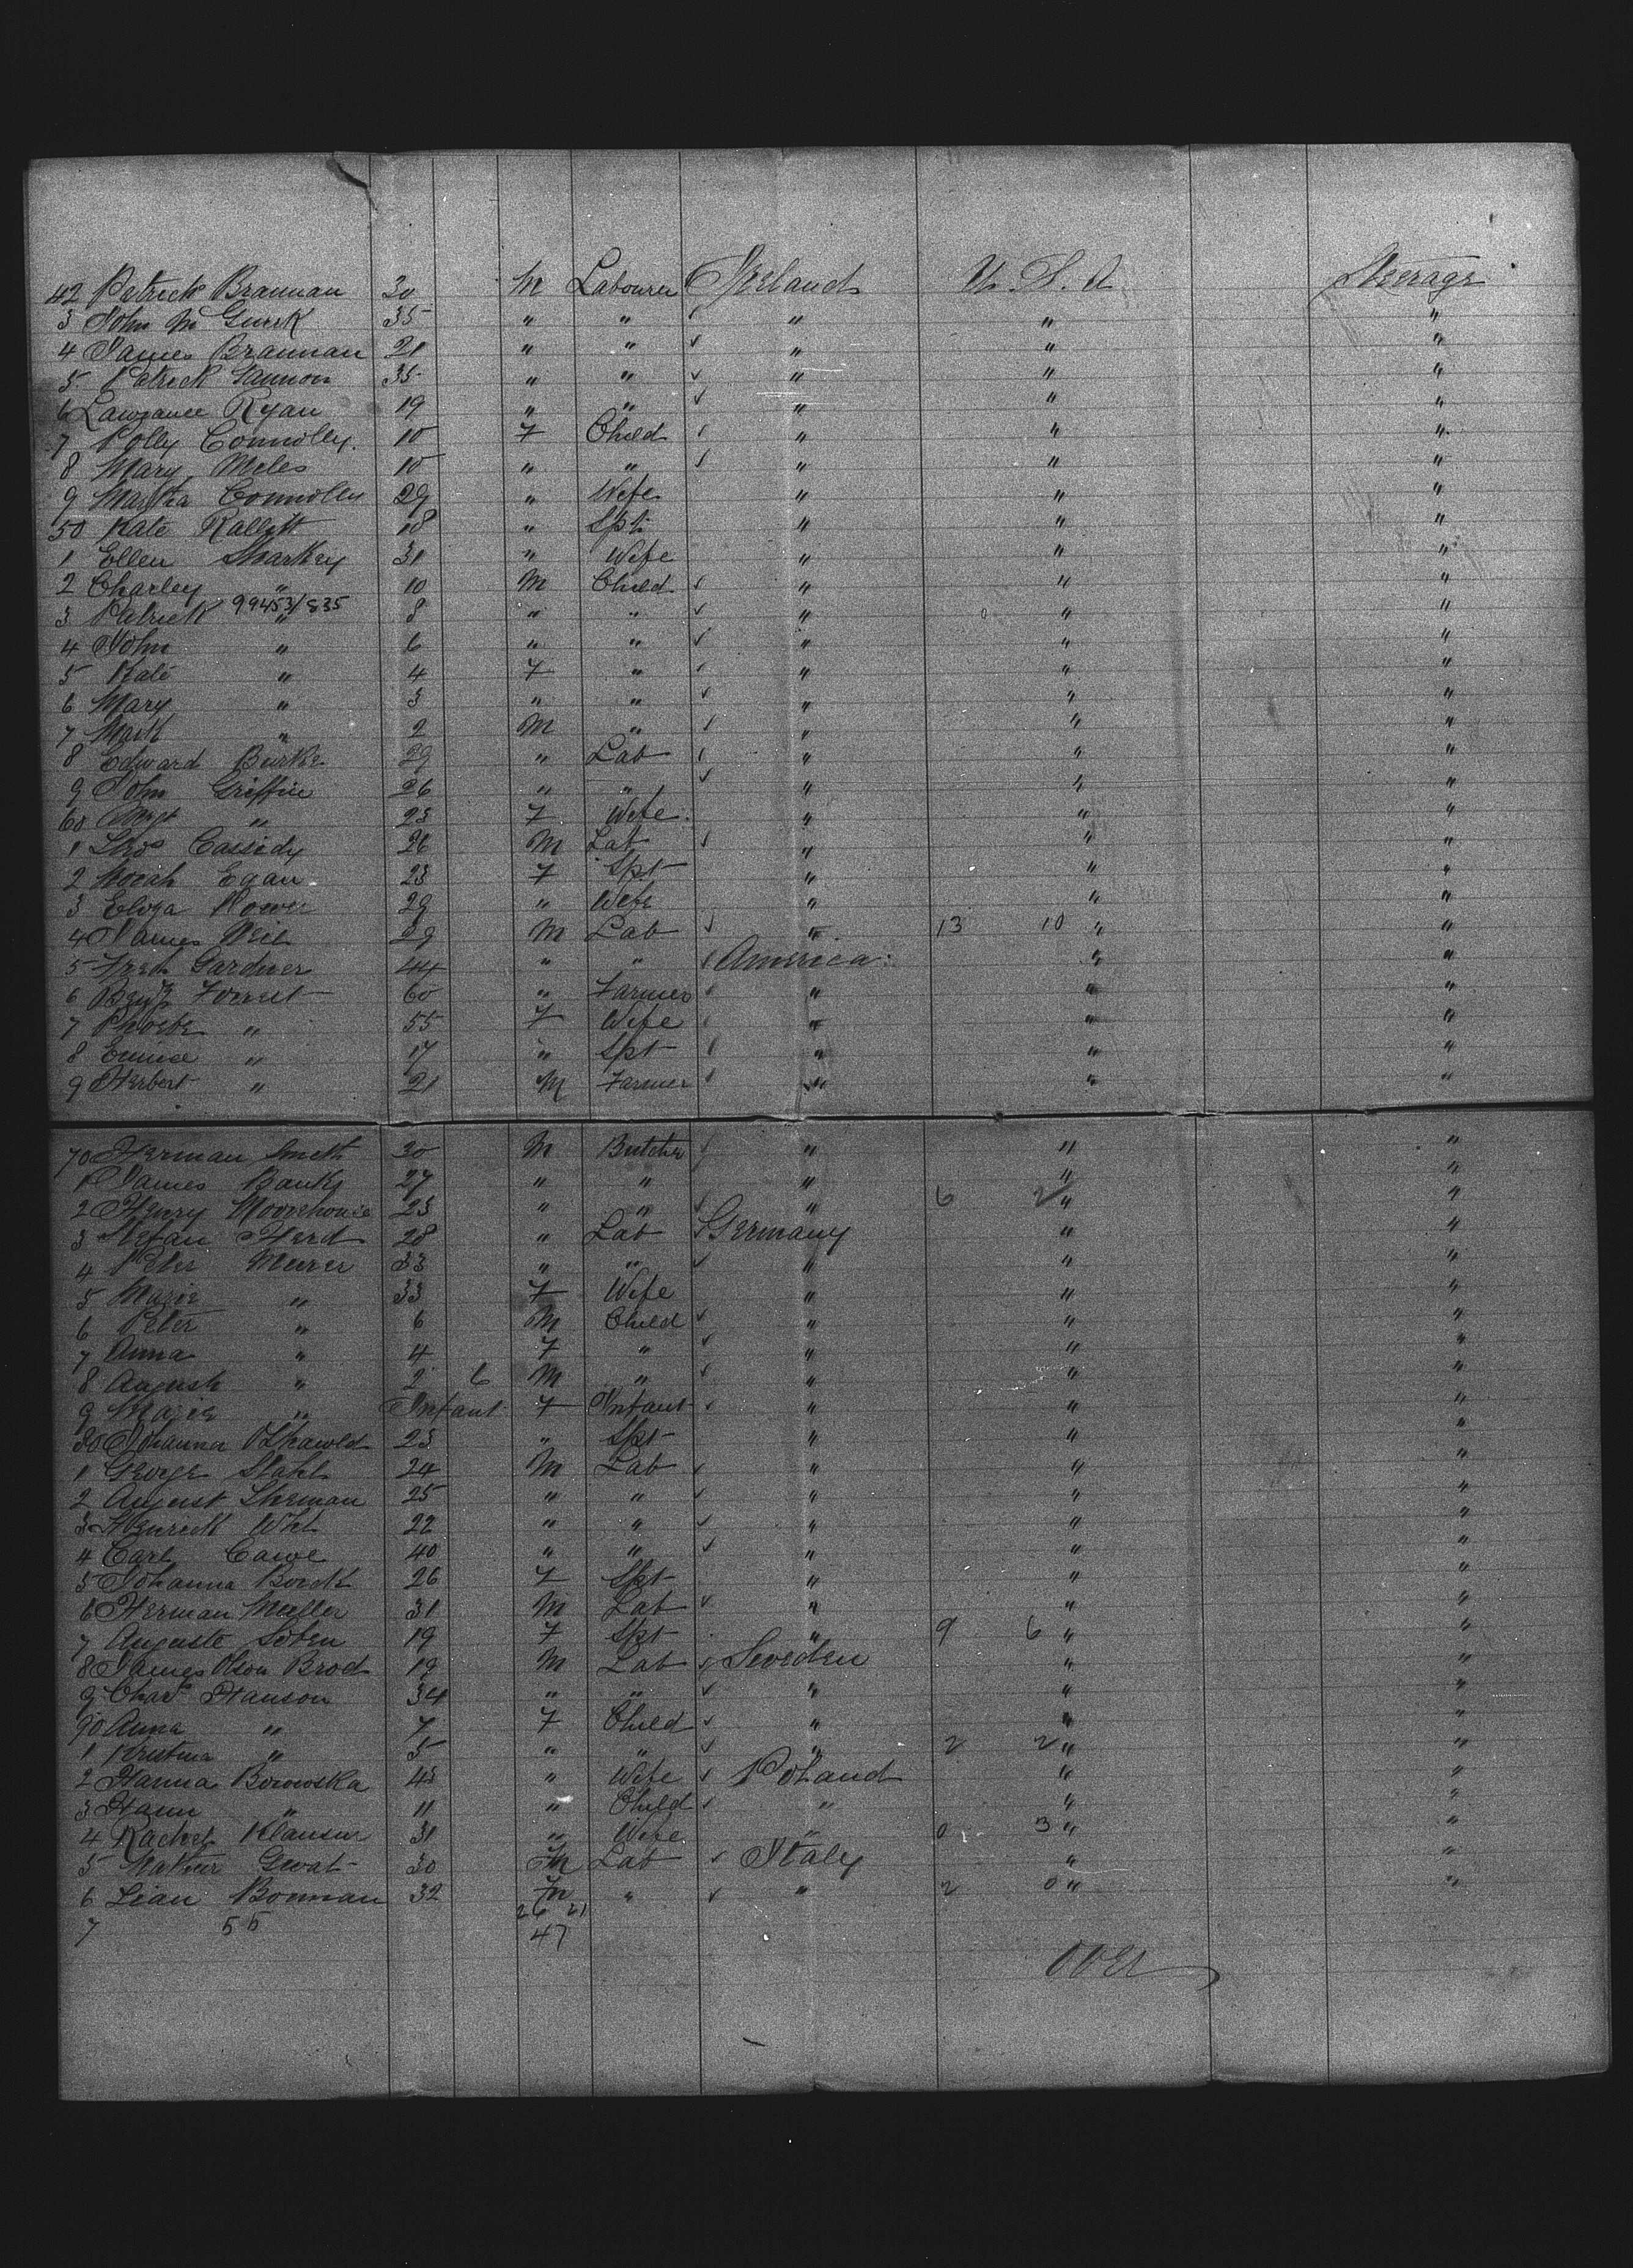 42 Patrick Brannan 30 M Labourer Ireland U.S.A Steerage
3 John McGurk 35 " " " " "
4 James Brannan 21 " " " " "
5 Patrick Gannon 35 " " " " "
6 Lawrance Ryan 19 " " " " "
7 Polly Connolly 10 F Child " " "
8 Mary Meles 10 " " " " "
9 Martha Connolly 29 " Wife " " "
50 Kate 18 " Spt " " "
1 Ellen Sharkey 31 " Wife " " "
2 Charley " 10 M Child " " "
99453/835
3 Patrick " 8 " " " " "
4 John " 6 " " " " "
5 Kate " 4 F " " " "
6 Mary " 3 " " " " "
7 " 2 M " " " "
8 Edward Burke 29 " Lab " " "
9 John Griffin 26 " " " " "
60 Margt " 23 F Wife " " "
1 Thos Cassidy 26 M Lab " " "
2 Norah Egan 23 F Spt " " "
3 Eliza Power 29 " Wife " " "
4 James Neil 29 M Lab " 13 10 " "
5 Fred Gardner 44 " " America " "
6 Benj Forrest 60 " Farmer " " "
7 Phoebe " 55 F Wife " " "
8 " 17 " Spt " " "
9 Herbert " 21 M Farmer " " "
70 Herman Smith 30 M Butcher " " "
1 James Banks 27 " " " " "
2 Henry Moorehouse 23 " " " 6 2 " "
3 Stefan Herd 28 " Lab Germany " "
4 Peter Meurer 33 " " " " "
5 Marie " 33 F Wife " " "
6 Peter " 6 M Child " " "
7 Anna " 4 F " " " "
8 August " 2 6 M " " " "
9 Marie " Infant F Infant " " "
80 Johanna 23 " Spt " " "
1 George Stahl 24 M Lab " " "
2 August Sherman 25 " " " " "
3 Henrick 22 " " " " "
4 Carl 40 " " " " "
5 Johanna 26 F Spt " " "
6 Herman Muller 31 M Lab " " "
7 Auguste 19 F Spt " 9 6 " "
8 James Olson Brod 19 M Lab Sweden " "
9 Chas Hanson 34 " " " " "
90 Anna " 7 F Child " " "
1 Kristina " 5 " " " 2 2 " "
2 Hanna Borowska 43 " Wife Poland " "
3 Hann " 11 " Child " " "
4 Rachel Klausur 31 " Wife " 0 3 " "
5 30 M Lab Italy " "
6 Bonnan 32 M " " 2 0 " "
26 21
7 55 47
over